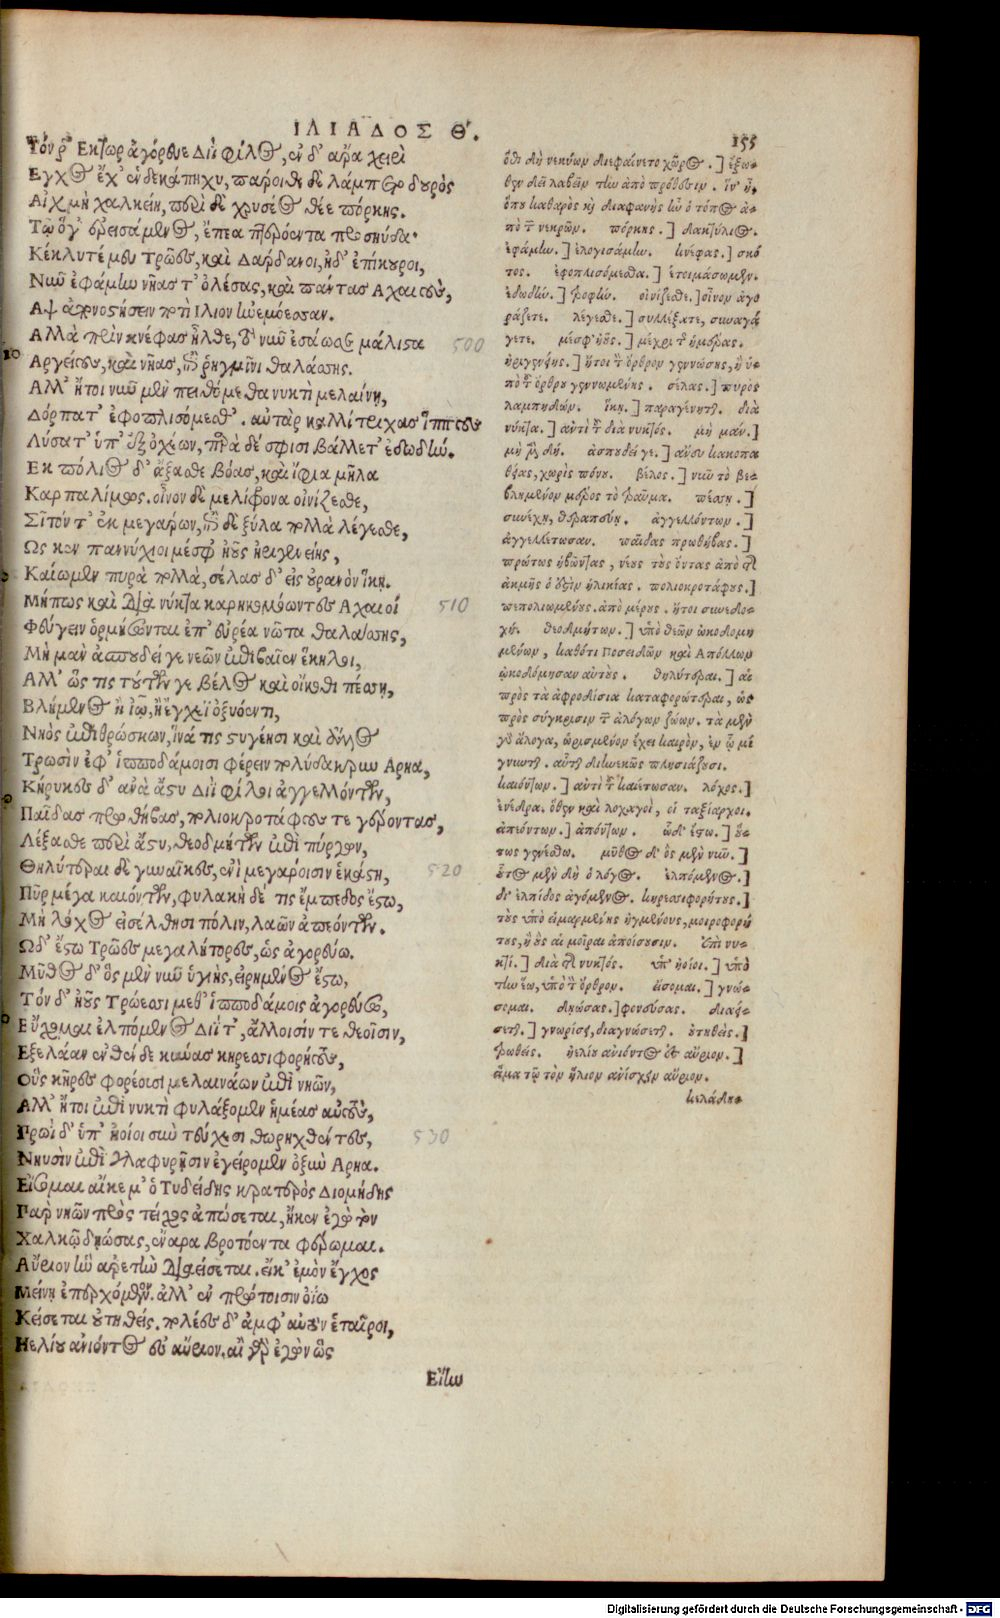 ΙΛΙΑΔΟΣ Θ.
155
Τόν ῥ' Εκτωρ ἀγόρευε Διῒ φίλος, ἐν δ' ἄρα χειρὶ
Εγχος ἔχ' ἑνδεκάπηχυ, πάροιθε δὲ λάμπετο δουρὸς
Αἰχμὴ χαλκείη, περὶ δὲ χρύσεος θέε πόρκης.
Τῷ ὅγ' ἐρεισάμενος, ἔπεα πτερόεντα προσηύδα·
Κέκλυτέ μευ Τρῶες, καὶ Δάρδανοι, ἠδ' ἐπίκουροι,
Νῦν ἐφάμην νῆας τ' ὀλέσας, καὶ πάντας Αχαιοὺς,
Αψ ἀπονοστήσειν προτὶ Ιλιον ἠνεμόεσσαν.
Αλλὰ πρὶν κνέφας ἦλθε, τὸ νῦν ἐσάωσε μάλιστα
500
Αργείους, καὶ νῆας, ἐπὶ ῥηγμῖνι θαλάσσης.
10
Αλλ' ἤτοι νῦν μὲν πειθόμεθα νυκτὶ μελαίνῃ,
Δόρπατ' ἐφοπλισόμεσθ'. αὐτὰρ καλλίτριχας ἵππους
Λύσατ' ὑπ' ἐξ ὀχέων, παρὰ δέ σφισι βάλλετ' ἐδωδήν.
Εκ πόλιος δ' ἄξασθε βόας, καὶ ἴφια μῆλα
Καρπαλίμως. οἶνον δὲ μελίφρονα οἰνίζεσθε,
Σῖτόν τ' ἐκ μεγάρων, ἐπὶ δὲ ξύλα πολλὰ λέγεσθε,
Ως κεν παννύχιοι μέσφ' ἠοῦς ἠριγενείης,
Καίωμεν πυρὰ πολλὰ, σέλας δ' εἰς οὐρανὸν ἵκῃ.
Μήπως καὶ διὰ νύκτα καρηκομόωντες Αχαιοί
510
Φεύγειν ὁρμήσωνται ἐπ' εὐρέα νῶτα θαλάσσης,
Μὴ μὰν ἀσπουδεί γε νεῶν ἐπιβαῖεν ἕκηλοι,
Αλλ' ὥς τις τούτων γε βέλος καὶ οἴκοθι πέσσῃ,
Βλήμενος ἢ ἰῷ, ἢ ἔγχεϊ ὀξυόεντι,
Νηὸς ἐπιθρώσκων, ἵνά τις στυγέῃσι καὶ ἄλλος
Τρωσὶν ἐφ' ἱπποδάμοισι φέρειν πολύδακρυν Αρηα,
Κήρυκες δ' ἀνὰ ἄστυ Διῒ φίλοι ἀγγελλόντων,
Παῖδας πρωθήβας, πολιοκροτάφους τε γέροντας,
Λέξασθε περὶ ἄστυ, θεοδμήτων ἐπὶ πύργων,
Θηλύτεραι δὲ γυναῖκες, ἐνὶ μεγάροισιν ἑκάστη,
520
Πῦρ μέγα καιόντων, φυλακὴ δέ τις ἔμπεδος ἔστω,
Μὴ λόχος εἰσέλθησι πόλιν, λαῶν ἀπεόντων.
Ωδ' ἔστω Τρῶες μεγαλήτορες, ὡς ἀγορεύω.
Μῦθος δ' ὃς μὲν νῦν ὑγιὴς, εἰρημένος ἔστω,
Τόν δ' ἠοῦς Τρώεσσι μεθ' ἱπποδάμοις ἀγορεύσω,
Εὔχομαι ἐλπόμενος Διΐ τ', ἄλλοισίν τε θεοῖσιν,
Εξελάαν ἐνθένδε κύνας κηρεσσιφορήτους,
Οὓς κῆρες φορέουσι μελαινάων ἐπὶ νηῶν,
Αλλ' ἤτοι ἐπὶ νυκτὶ φυλάξομεν ἡμέας αὐτοὺς,
Πρωῒ δ' ὑπ' ἠοίοι σὺν τεύχεσι θωρηχθέντες,
530
Νηυσὶν ἐπὶ γλαφυρῇσιν ἐγείρομεν ὀξὺν Αρηα.
Εἴσομαι αἴκε μ' ὁ Τυδείδης κρατερὸς Διομήδης
Παρ νηῶν πρὸς τεῖχος ἀπώσεται, ἤκεν ἐγὼ τὸν
Χαλκῷ δῃώσας, ἔναρα βροτόεντα φέρωμαι.
Αὔριον ἣν ἀρετὴν διαείσεται. εἴκ' ἐμὸν ἔγχος
Μείνῃ ἐπερχόμενον. ἀλλ' ἐν πρώτοισιν ὀΐω
Κείσεται οὐτηθείς. πολέες δ' ἀμφ' αὐτὸν ἑταῖροι,
Ηελίου ἀνιόντος ἐς αὔριον. αἲ γὰρ ἐγὼν ὣς
Εἴην
ὅθι δὴ νεκύων διεφαίνετο χῶρος.] ἔξω-
θεν δεῖ λαβεῖν τὴν ἀπὸ πρόθεσιν. ἵν' ᾖ,
ὅπου καθαρὸς καὶ διαφανὴς ἦν ὁ τόπος ἀ-
πὸ τῶν νεκρῶν. πόρκης.] δακτύλιος.
ἐφάμην.] ἐλογισάμην. κνέφας.] σκό
τος. ἐφοπλισόμεσθα.] ἑτοιμάσωμεν.
ἐδωδὴν.] τροφήν. οἰνίζεσθε.] οἶνον ἀγο
ράζετε. λέγεσθε.] συλλέξατε, συναγά
γετε. μέσφ' ἠοῦς.] μέχρι τῆς ἡμέρας.
ἠριγενείης.] ἤτοι τῆς ὄρθρον γεννώσης, ἢ ὑ-
πὸ τοῦ ὄρθρου γεννωμένης. σέλας.] πυρὸς
λαμπηδών. ἵκῃ.] παραγένηται. διὰ
νύκτα.] ἀντὶ τοῦ διὰ νυκτός. μὴ μάν.]
μὴ μὲν δή. ἀσπουδεί γε.] ἄνευ κακοπα
θείας, χωρὶς πόνου. βέλος.] νῦν τὸ βε-
βλημένον μέρος τὸ τραῦμα. πέσσῃ.]
συνέχῃ, θεραπεύῃ. ἀγγελλόντων.]
ἀγγελλέτωσαν. παῖδας πρωθήβας.]
πρώτως ἡβῶντας, νέους τοὺς ὄντας ἀπὸ τῆς
ἀκμῆς ὅ ἐστιν ἡλικίας. πολιοκροτάφους.]
πεπολιωμένους. ἀπὸ μέρους. ἤτοι συνεδο-
χή. θεοδμήτων.] ὑπὸ θεῶν ᾠκοδομη
μένων, καθότι Ποσειδῶν καὶ Απόλλων
ᾠκοδόμησαν αὐτούς. θηλύτεραι.] αἱ
πρὸς τὰ ἀφροδίσια καταφορώτεραι, ὡς
πρὸς σύγκρισιν τῶν ἀλόγων ζώων. τὰ μὲν
γὰρ ἄλογα, ὡρισμένον ἔχει καιρὸν, ἐν ᾧ μί
γνυται. αὗται διηνεκῶς πλησιάζουσι.
καιόντων.] ἀντὶ τοῦ καιέτωσαν. λόχος.]
ἐνέδρα. ὅθεν καὶ λοχαγοὶ, οἱ ταξίαρχοι.
ἀπεόντων.] ἀπόντων. ὧδ' ἔστω.] οὕ-
τως γενέσθω. μῦθος δ' ὃς μὲν νῦν.]
οὗτος μὲν δὴ ὁ λόγος. ἐλπόμενος.]
δι' ἐλπίδος ἀγόμενος. κηρεσσιφορήτους.]
τοὺς ὑπὸ εἱμαρμένης ἠγμένους, μοιροφορή
τους, ἢ οὓς αἱ μοῖραι ἀποίσουσιν. ἐπὶ νυ-
κτί.] διὰ τῆς νυκτός. ὑπ' ἠοῖοι.] ὑπὸ
τὴν ἕω, ὑπὸ τὸν ὄρθρον. εἴσομαι.] γνώ-
σομαι. δῃώσας.] φονεύσας. διαεί-
σεται.] γνωρίσει, διαγνώσεται. οὐτηθείς.]
τρωθείς. ἠελίου ἀνιόντος ἐς αὔριον.]
ἅμα τῷ τὸν ἥλιον ἀνίσχειν αὔριον.
κελάδη-
Digitalisierung gefördert durch die Deutsche Forschungsgemeinschaft - DFG